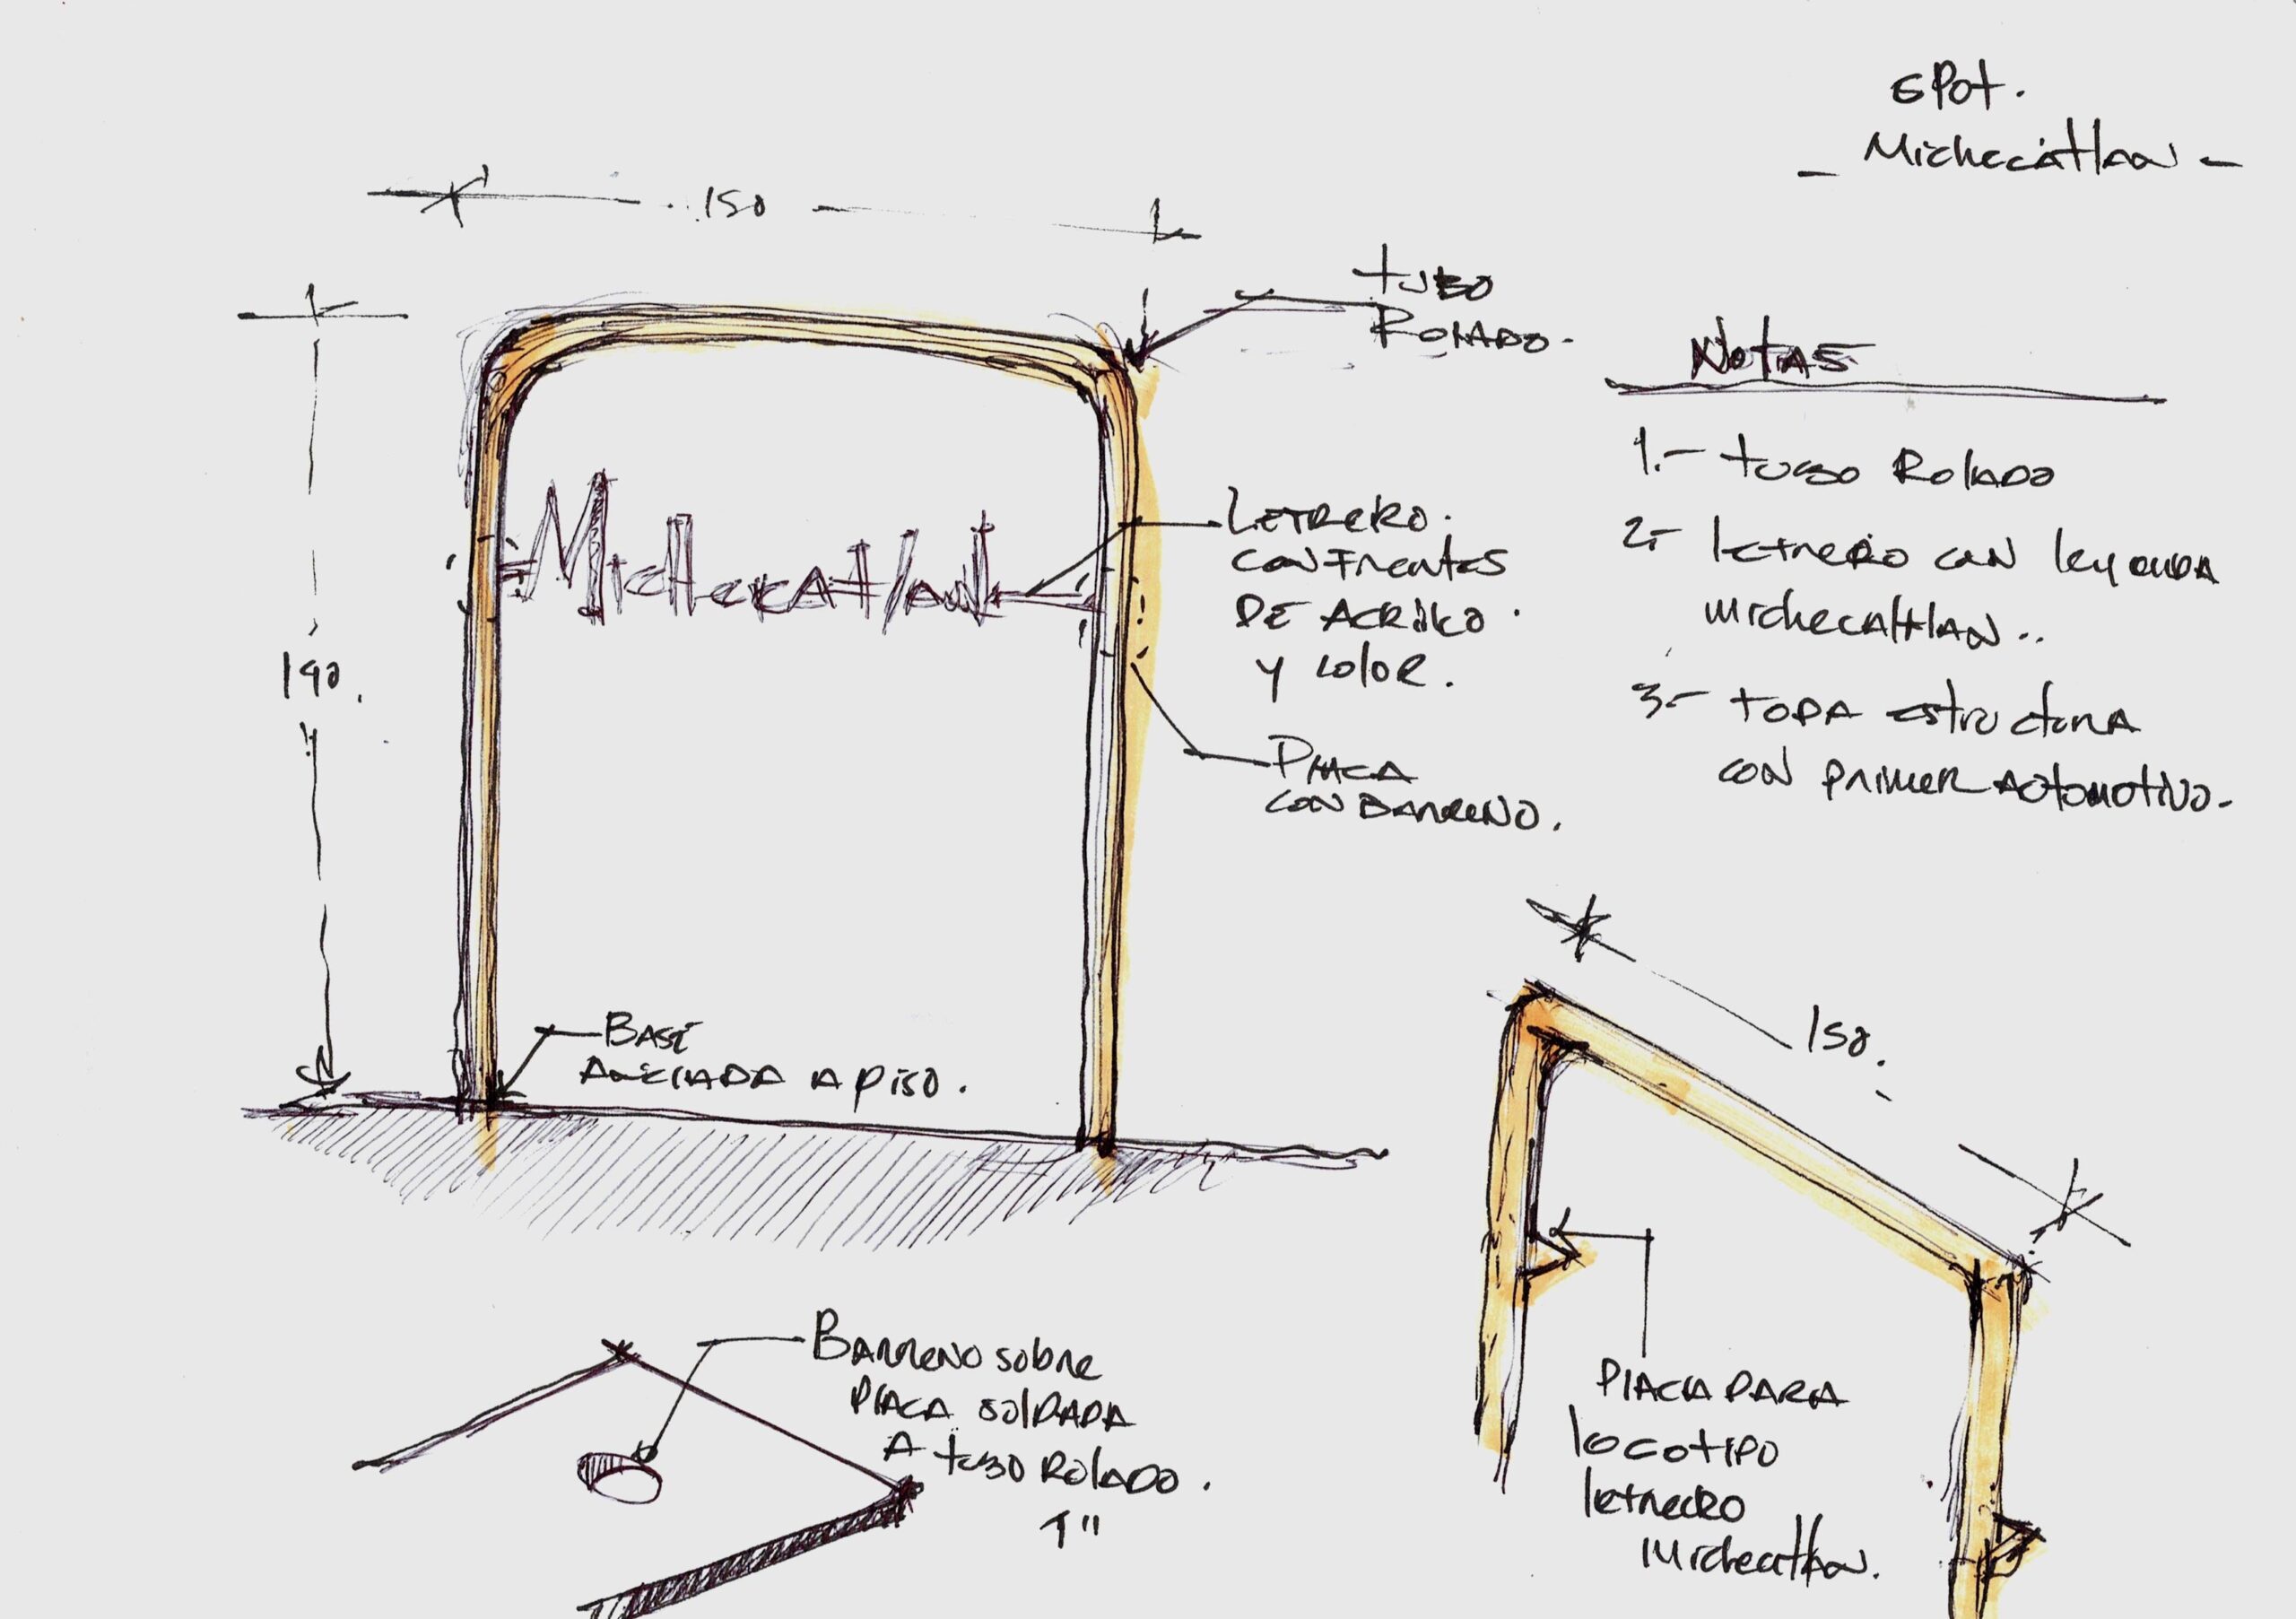 SPOT.
- Michecatlan -
150
TUBO
ROLADO.
190.
NOTAS
1.- TUBO ROLADO
2.- letrero con leyenda
michecatlan..
3.- TODA estructura
con primer AUTOMOTIVO.
Michecatlan
LETRERO.
CON FRENTES
DE ACRILICO
Y COLOR.
PLACA
CON BARRENO.
BASE
ANCLADA A PISO.
150.
BARRENO SOBRE
PLACA SOLDADA
A TUBO ROLADO.
1"
PLACA PARA
logotipo
letrero
Michecatlan.